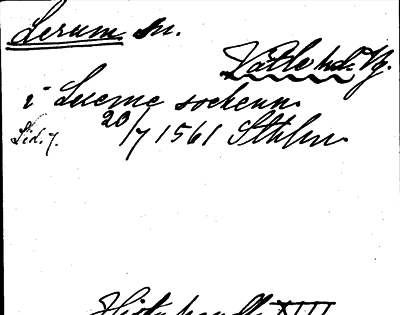 Lerum sn.
Vättle hd. Vg.
i Lueme sockenn
Lid. 7. 20/7 1561 Sthlm
Hist. handl. XIII